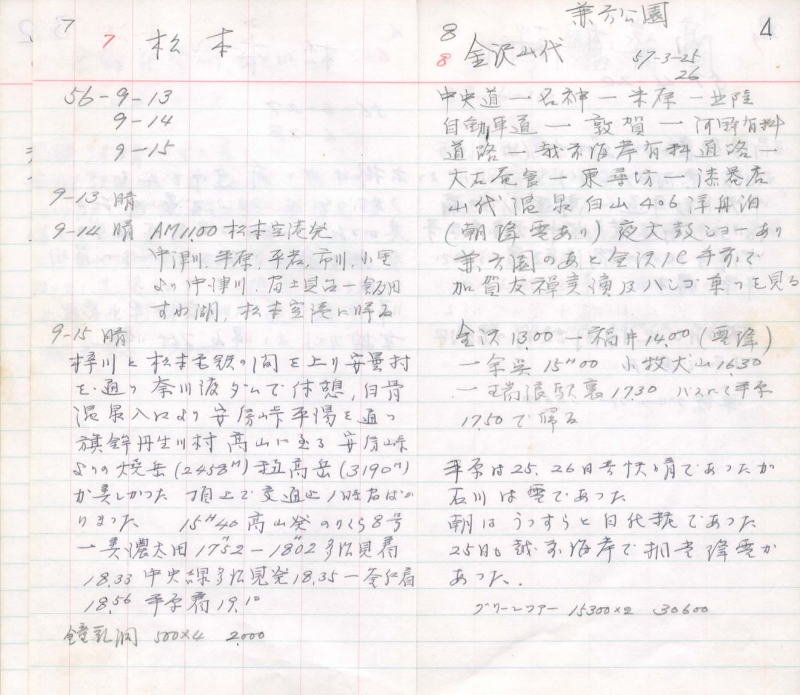 7
7 松本
56-9-13
9-14
9-15
9-13 晴
9-14 晴 AM11.00 松本空港発
中津川、平原、平岩、市川、小里
より中津川
すわ湖、松本空港に帰る
9-15 晴
梓川と松本電鉄の間を上り安曇村
を通り奈川渡ダムで休憩、白骨
温泉入口より安房峠平湯を通つ
旗鉾丹生川村高山に至る 安房峠
よりの焼岳(2458M) 穂高岳(3190M)
が美しかった 頂上で交通止1時間ばか
りまった 15H40 高山発のりくら8号
一美濃太田 1752-1802 多治見着
18.33 中央線多治見発18.35一釜戸着
18.56 平原着19.10
鐘乳洞 500×4 2,000
8
兼六公園
4
8 金沢山代 57-3-25
26
中央道一名神一米原一北陸
自動車道一敦賀一河野有料
道路一越前海岸有料道路一
一東尋坊一漆器店
山代温泉白山406号舟泊
(朝降雪あり) 夜太鼓ショーあり
兼六園のあと金沢ICの手前で
加賀友禅実演及ハシゴ乗りを見る
金沢13.00一福井14.00(雪降)
一余呉 15H00 小牧犬山1630
一瑞浪駅裏1730 バスにて平原
17.50で帰る
平原は25、26日共快晴であったが
石川は雪であった
朝はうっすらと白化粧であった
25日も越前海岸で相当降雪が
あった.
グリーンツアー 15300×2 30600